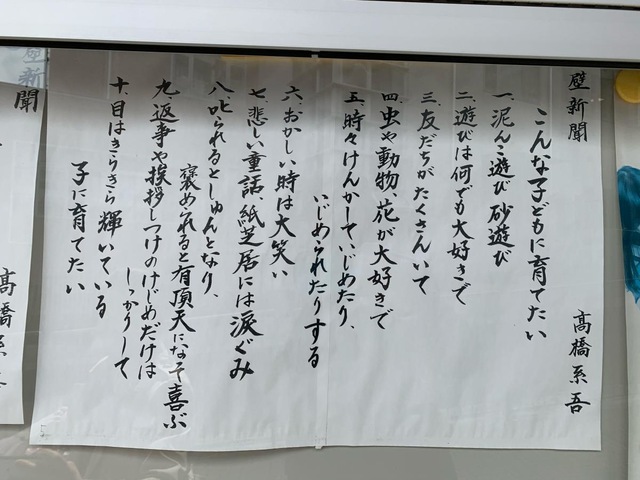 壁新聞
高橋系吾
こんな子どもに育てたい
一、泥んこ遊び 砂遊び
二、遊びは何でも大好きで
三、友だちがたくさんいて
四、虫や動物、花が大好きで
五、時々けんかして、いじめたり、
いじめられたりする
六、おかしい時は大笑い
七、悲しい童話、紙芝居には涙ぐみ
八、叱られるとしゅんとなり、
褒められると有頂天になって喜ぶ
九、返事や挨拶しつけのけじめだけは
しっかりして
十、目はきらきら輝いている
子に育てたい
壁新聞
高橋系